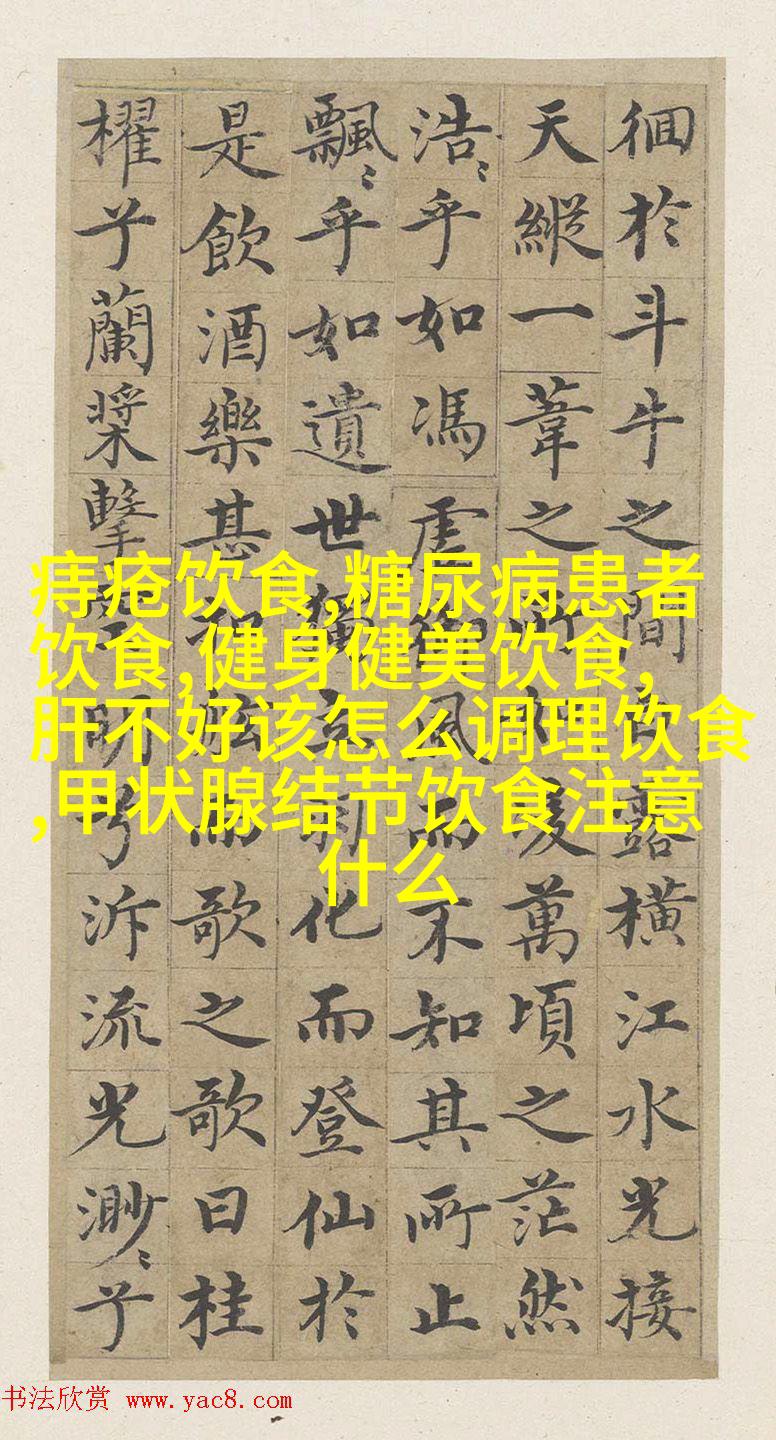 徊於斗牛之間露橫江水光接
天縱一葦之所如凌萬頃之茫然
浩〻乎如馮虛御風而不知其所止
飄〻乎如遺世獨立羽化而登仙於
是飲酒樂甚舷而歌之歌曰桂
櫂兮蘭槳擊明兮泝流光渺〻兮
痔疮饮食,糖尿病患者
饮食,健身健美饮食,
肝不好该怎么调理饮食
,甲状腺结节饮食注意
什么
书法欣赏 www.yac8.com